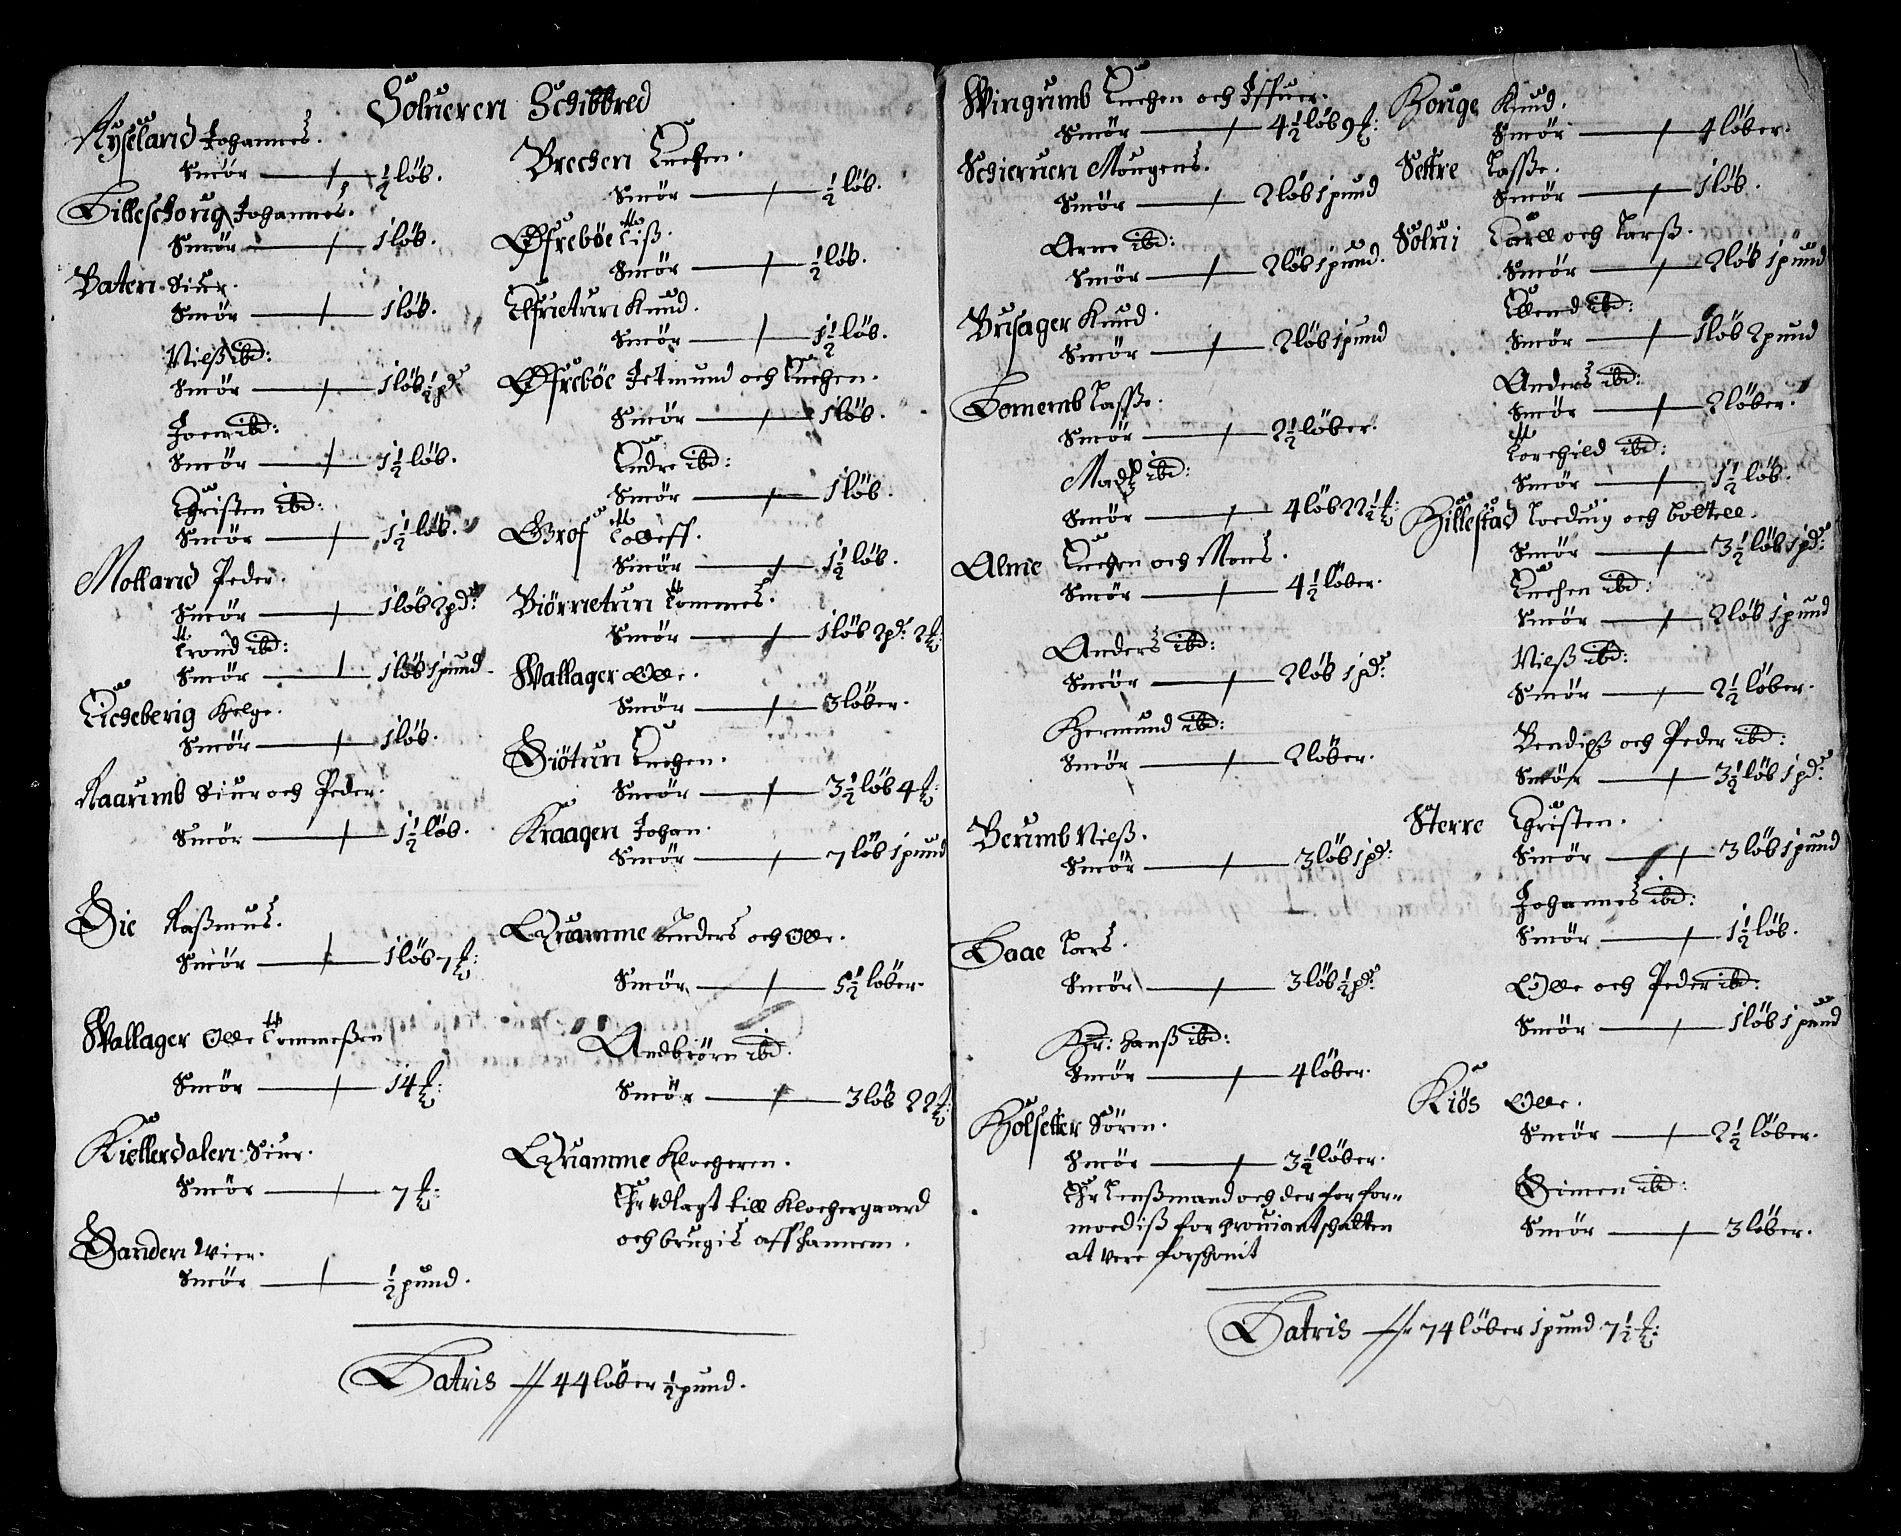 Solueren Schibbred
Nyseland Johannes.
Smör — ½ löb.
Tilleschorig Johannes.
Smör — 1 löb.
Baten Siur.
Smör — 1 löb.
Nielß ibd:
Smör — 1 löb ½ pd
Joen ibd:
Smör — 1½ löb.
Christen ibd:
Smör — 1½ löb.
Molland Peder.
Smör — 1 löb 2 pd:
Trond ibd:
Smör — 1 löb 1 pund
Eicheberig Helge.
Smör — 1 löb.
Naarumb Siur och Peder.
Smör — 1½ löb.
Sie Raßmus.
Smör — 1 löb 7 ℔:
Wallager Olle Tommeßen
Smör — 14 ℔:
Kiellerdalen Siur.
Smör — 7 ℔:
Sanden Wier.
Smör — ½ pund.
Brechen Enchen.
Smör — ½ löb.
Öfreböe Tiß.
Smör — ½ löb.
Efrietun Knud.
Smör — 1½ löb.
Öfreböe Jetmund och Enchen.
Smör — 1 löb.
Endre ibd:
Smör — 1 löb.
Grof Tolleff.
Smör — 1½ löb.
Biörnetun Tommes.
Smör — 1 löb 2 pd: 2 ℔
Wallager Olle.
Smör — 3 löber.
Siötun Enchen.
Smör — 3½ löb 4 ℔:
Kraagen Johan.
Smör — 7 löb 1 pund
Quamme Anders och Olle.
Smör — 5½ löber.
Andbiörn ibd.
Smör — 3 löb 22 ℔:
Quamme Klocheren.
Er udlagt till Klochergaard
och brugis aff hannem.
Satris // 44 löber ½ pund.
Wingumb Enchen och Iffuer.
Smör — 4½ löb 9 ℔:
Schieruen Mougens.
Smör — 2 löb 1 pund
Arne ibd:
Smör — 2 löb 1 pund.
Brusager Knud.
Smör — 2 löb 1 pund
Tomemb Laße.
Smör — 2½ löber.
Madß ibd:
Smör — 4 löb 22½ ℔:
Alme Enchen och Mons.
Smör — 4½ löber.
Anders ibd:
Smör — 2 löb 1 pd:
Hermund ibd:
Smör — 2 löber.
Berumb Nielß.
Smör — 3 löb 1 pd:
Haae Lars.
Smör — 3 löb ½ pd:
Hr: Hanß ibd:
Smör — 4 löber.
Holsetter Sören.
Smör — 3½ löber.
Er Lenßmand och der for for-
moediß for prouiantschatten
at vere forschonit
Houge Knud.
Smör — 4 löber.
Settre Laße.
Smör — 1 löb.
Solui Carll och Larß.
Smör — 2 löb 1 pund
Ellend ibd:
Smör — 1 löb 2 pund
Anders ibd:
Smör — 2 löber.
Torchild ibd:
Smör — 1½ löb.
Hillestad Lording och Bottell.
Smör — 3½ löb 1 pd:
Enchen ibd:
Smör — 2 löb 1 pund
Nielß ibd:
Smör — 2½ löber.
Bendix och Peder ibd:
Smör — 3½ löb 1 pd:
Sterre Christen.
Smör — 3 löb 1 pund
Johannes ibd:
Smör — 1½ löb.
Olle och Peder ibd:
Smör — 1 löb 1 pund
Kiös Olle.
Smör — 2½ löber.
Simen ibd:
Smör — 3 löber.
Satris // 74 löber 1 pund 7½ ℔: